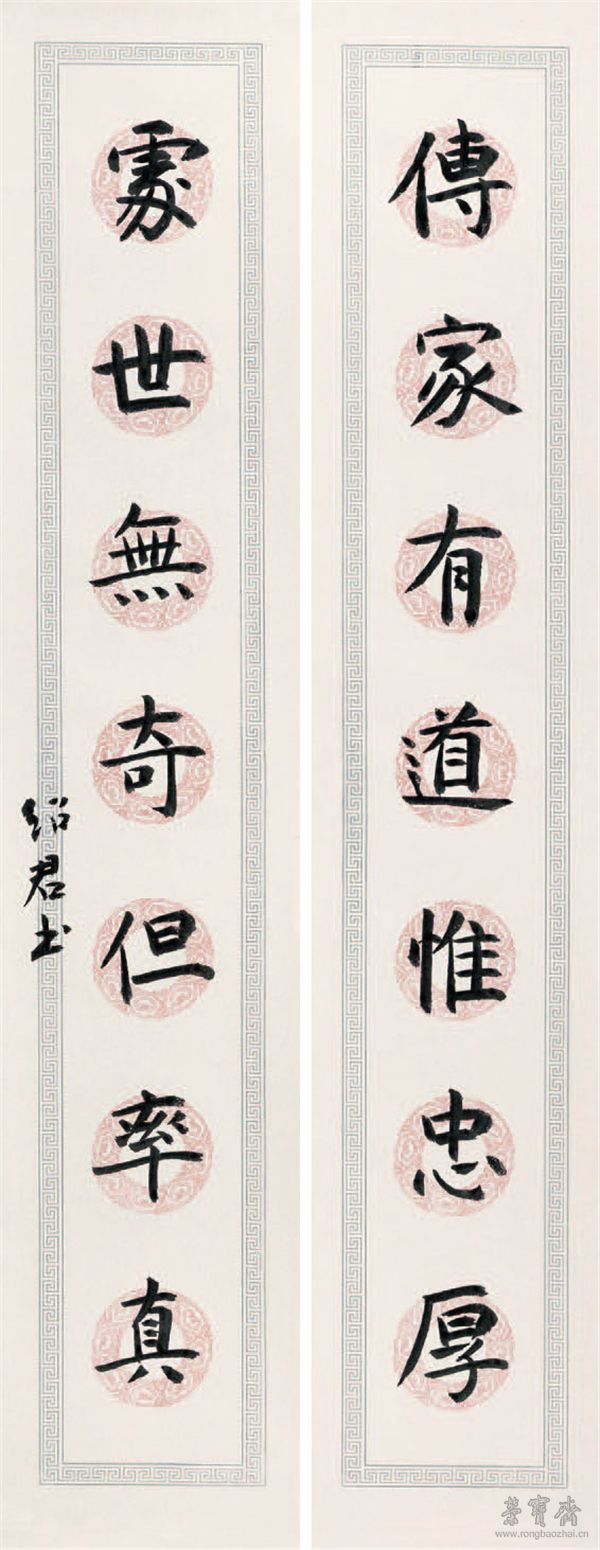 傳家有道惟忠厚
處世無奇但率真
绍君书
榮寶齋
www.rongbaozhai.cn